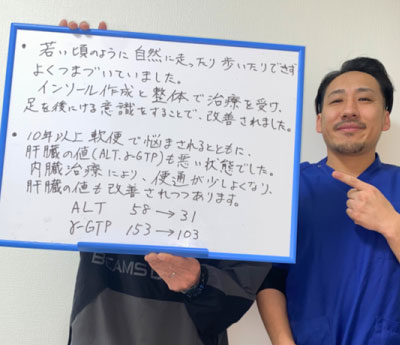 • 若い頃のように自然に走ったり歩いたりできず
よくつまづいていました。
インソール作成と整体で治療を受け、
足を後にける意識をすることで、改善されました。
• 10年以上軟便で悩まされるとともに、
肝臓の値(ALT.γ-GTP)も悪い状態でした。
内臓治療により、便通が少しよくなり、
肝臓の値も改善されつつあります。
ALT 58→31
γ-GTP 153→103
BEAMS